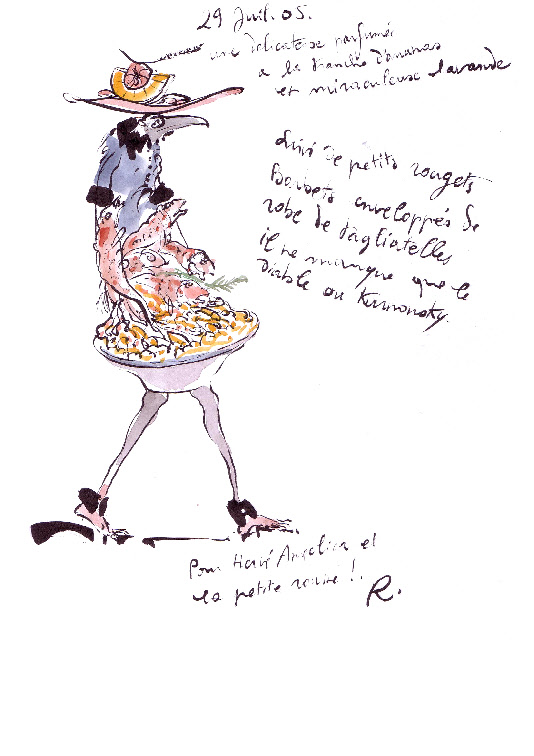 29 Juil. 05.
une délicatesse parfumée
à la d'ananas
et miraculeuse lavande
Suivi de petits rougets
Barbets enveloppés de
robe de tagliatelles
il ne manque que le
Diable ou Kurnonsky.
Pour Hervé Angelica et
la petite !
R.